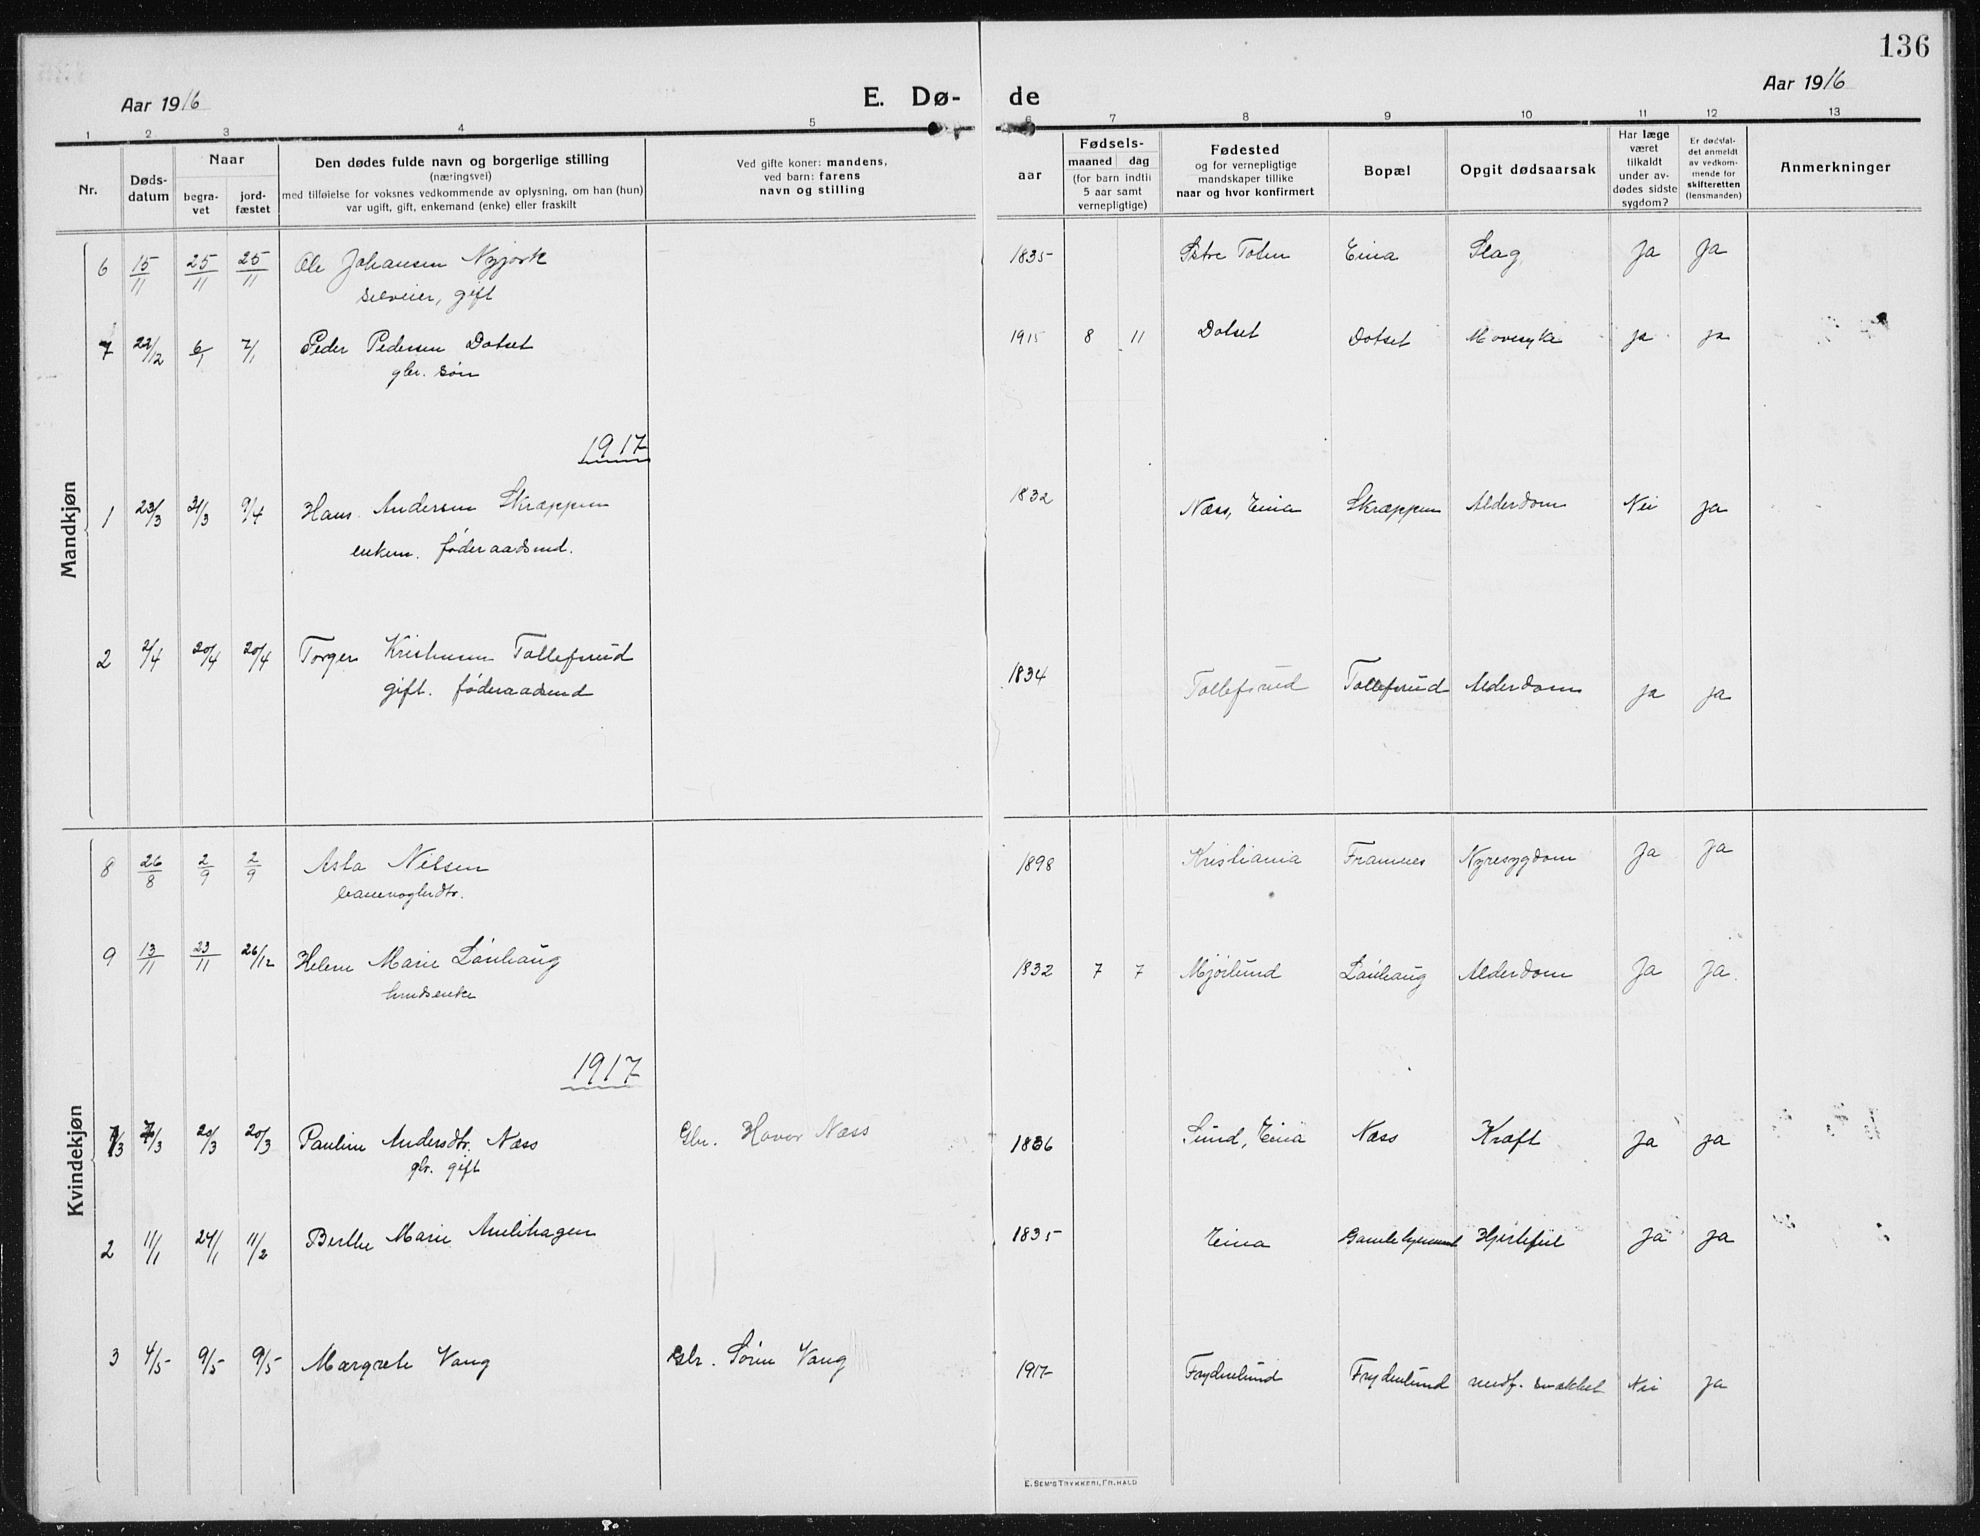 136
Aar 1916
E. Dø-
de
Aar 1916
1 2 3 4 5 6 7 8 9 10 11 12 13
Nr.
Døds-
datum
Naar
begra-
vet
jord-
fæstet
Den dødes fulde navn og borgerlige stilling
(næringsvei)
med tilføielse for voksnes vedkommende av oplysning, om han (hun)
var ugift, gift, enkemand (enke) eller fraskilt
Ved gifte koner: mandens,
ved barn: farens
navn og stilling
aar
Fødsels-
maaned dag
(for barn indtil
5 aar samt
vernepligtige)
Fødested
og for vernepligtige
mandskaper tillike
naar og hvor konfirmert
Bopæl
Opgit dødsaarsak
Har læge
været
tilkaldt
under av-
dødes sidste
sygdom?
Er dødsfal-
det anmeldt
av vedkom-
mende for
skifteretten
(lensmanden)
Anmerkninger
Mandkjøn
6 15/11 25/11 25/11 Ole Johansen Nyjork 1835 Østre Toten Eina Slag Ja Ja
selveier, gift
7 22/12 6/1 7/1 Peder Pedersen Dotset 1915 8 11 Dotset Dotset Mavesyke ja ja
gbr. søn
1917
1 23/3 31/3 9/4 Hans Andersen Skræppen 1832 Næss, Eina Skræppen Alderdom Nei ja
enkem. føderaadsmd.
2 2/4 20/4 20/4 Torger Kristiansen Tollefsrud 1834 Tollefsrud Tollefsrud Alderdom ja ja
gift. føderaadsmd
Kvindekjøn
8 26/8 2/9 2/9 Asta Nilsen 1898 Kristiania Framnes Nyresygdom Ja Ja
banevogterdtr.
9 13/11 23/11 26/12 Helene Marie Lønhaug 1832 7 7 Mjørlund Lønhaug Alderdom Ja Ja.
hmdsenke
1917
1 7/3 20/3 20/3 Pauline Andersdtr. Næss Gbr. Hovor Næss 1836 Sund, Eina Næss Kræft Ja ja
gbr. gift
2 11/1 24/1 11/2 Berthe Marie Amlihagen 1835 Eina Hjertefeil Ja ja
3 4/5 9/5 9/5 Margrete Vang Gbr. Søren Vang 1917 Frydenlund Frydenlund medf. svækket Nei Ja
E. Sem's Trykkeri, Fr.hald